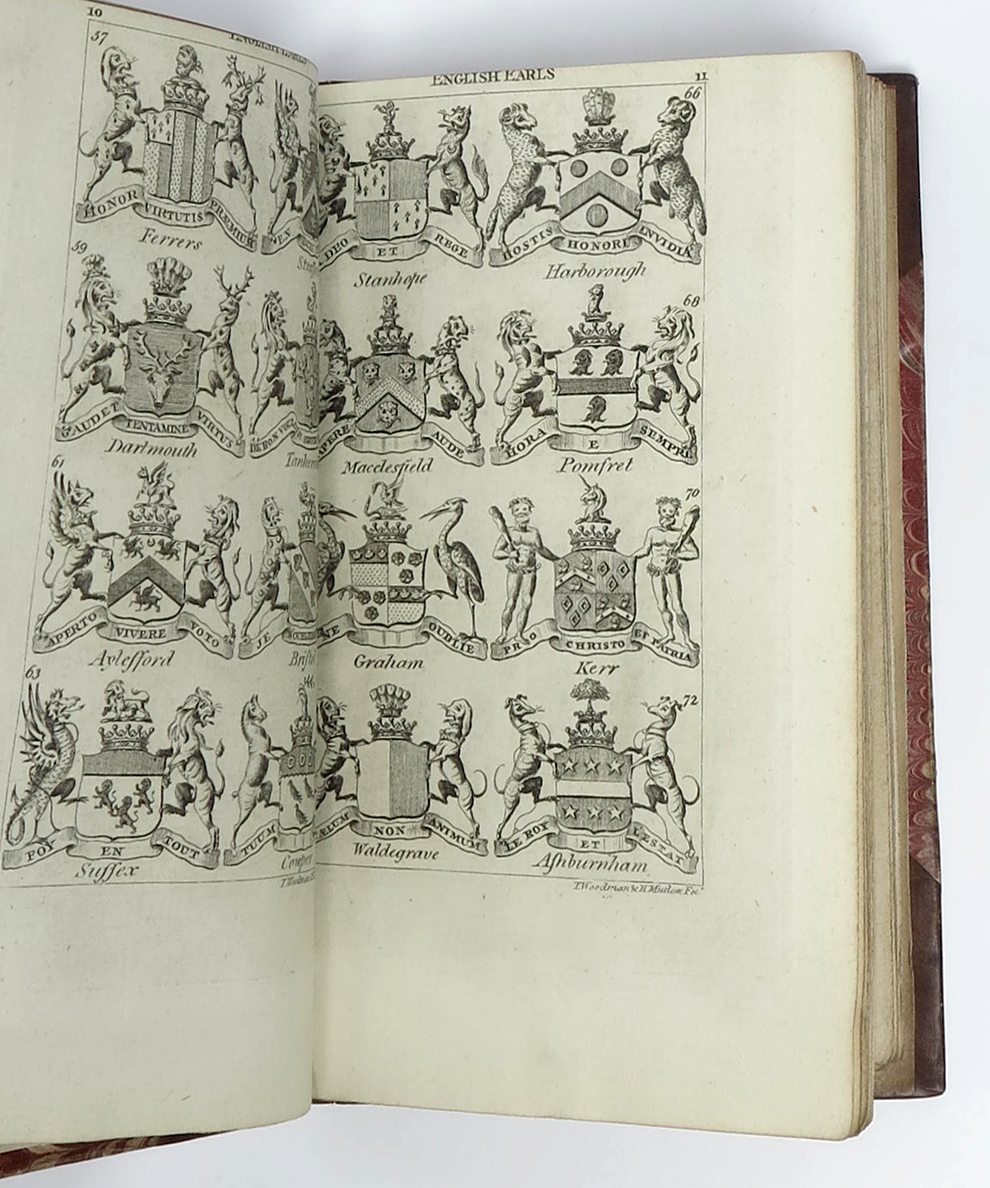 10
57
HONOR VIRTUTIS PRÆMIUM EN
Ferrers
59
AUDET TENTAMINE VIRTUS
Dartmouth
61
APERTO VIVERE VOTO JE
Aylesford
63
FOY EN TOUT TUUM
Suffex Cowper
ENGLISH EARLS 11
66
DEO ET REGE HOSTIS HONORI INVIDIA
Stanhope Harborough
68
APERE AUDE HORA E SEMPRE
Macclesfield Pomfret
70
NE OUBLIE PRO CHRISTO ET PATRIA
Graham Kerr
72
ÆLUM NON ANIMUM LE ROY ET L'ESTAT
Waldegrave Ashburnham
T. Woodman & H. Mutlow Fec.t